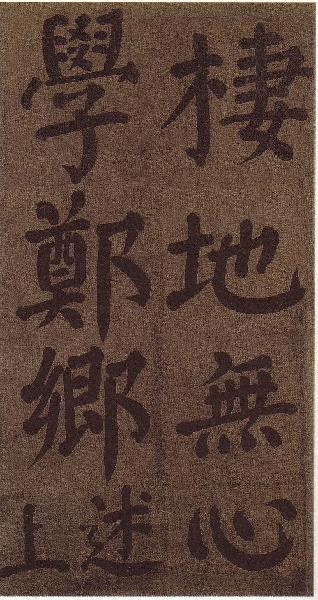 棲地無心
學鄭鄉
述
上